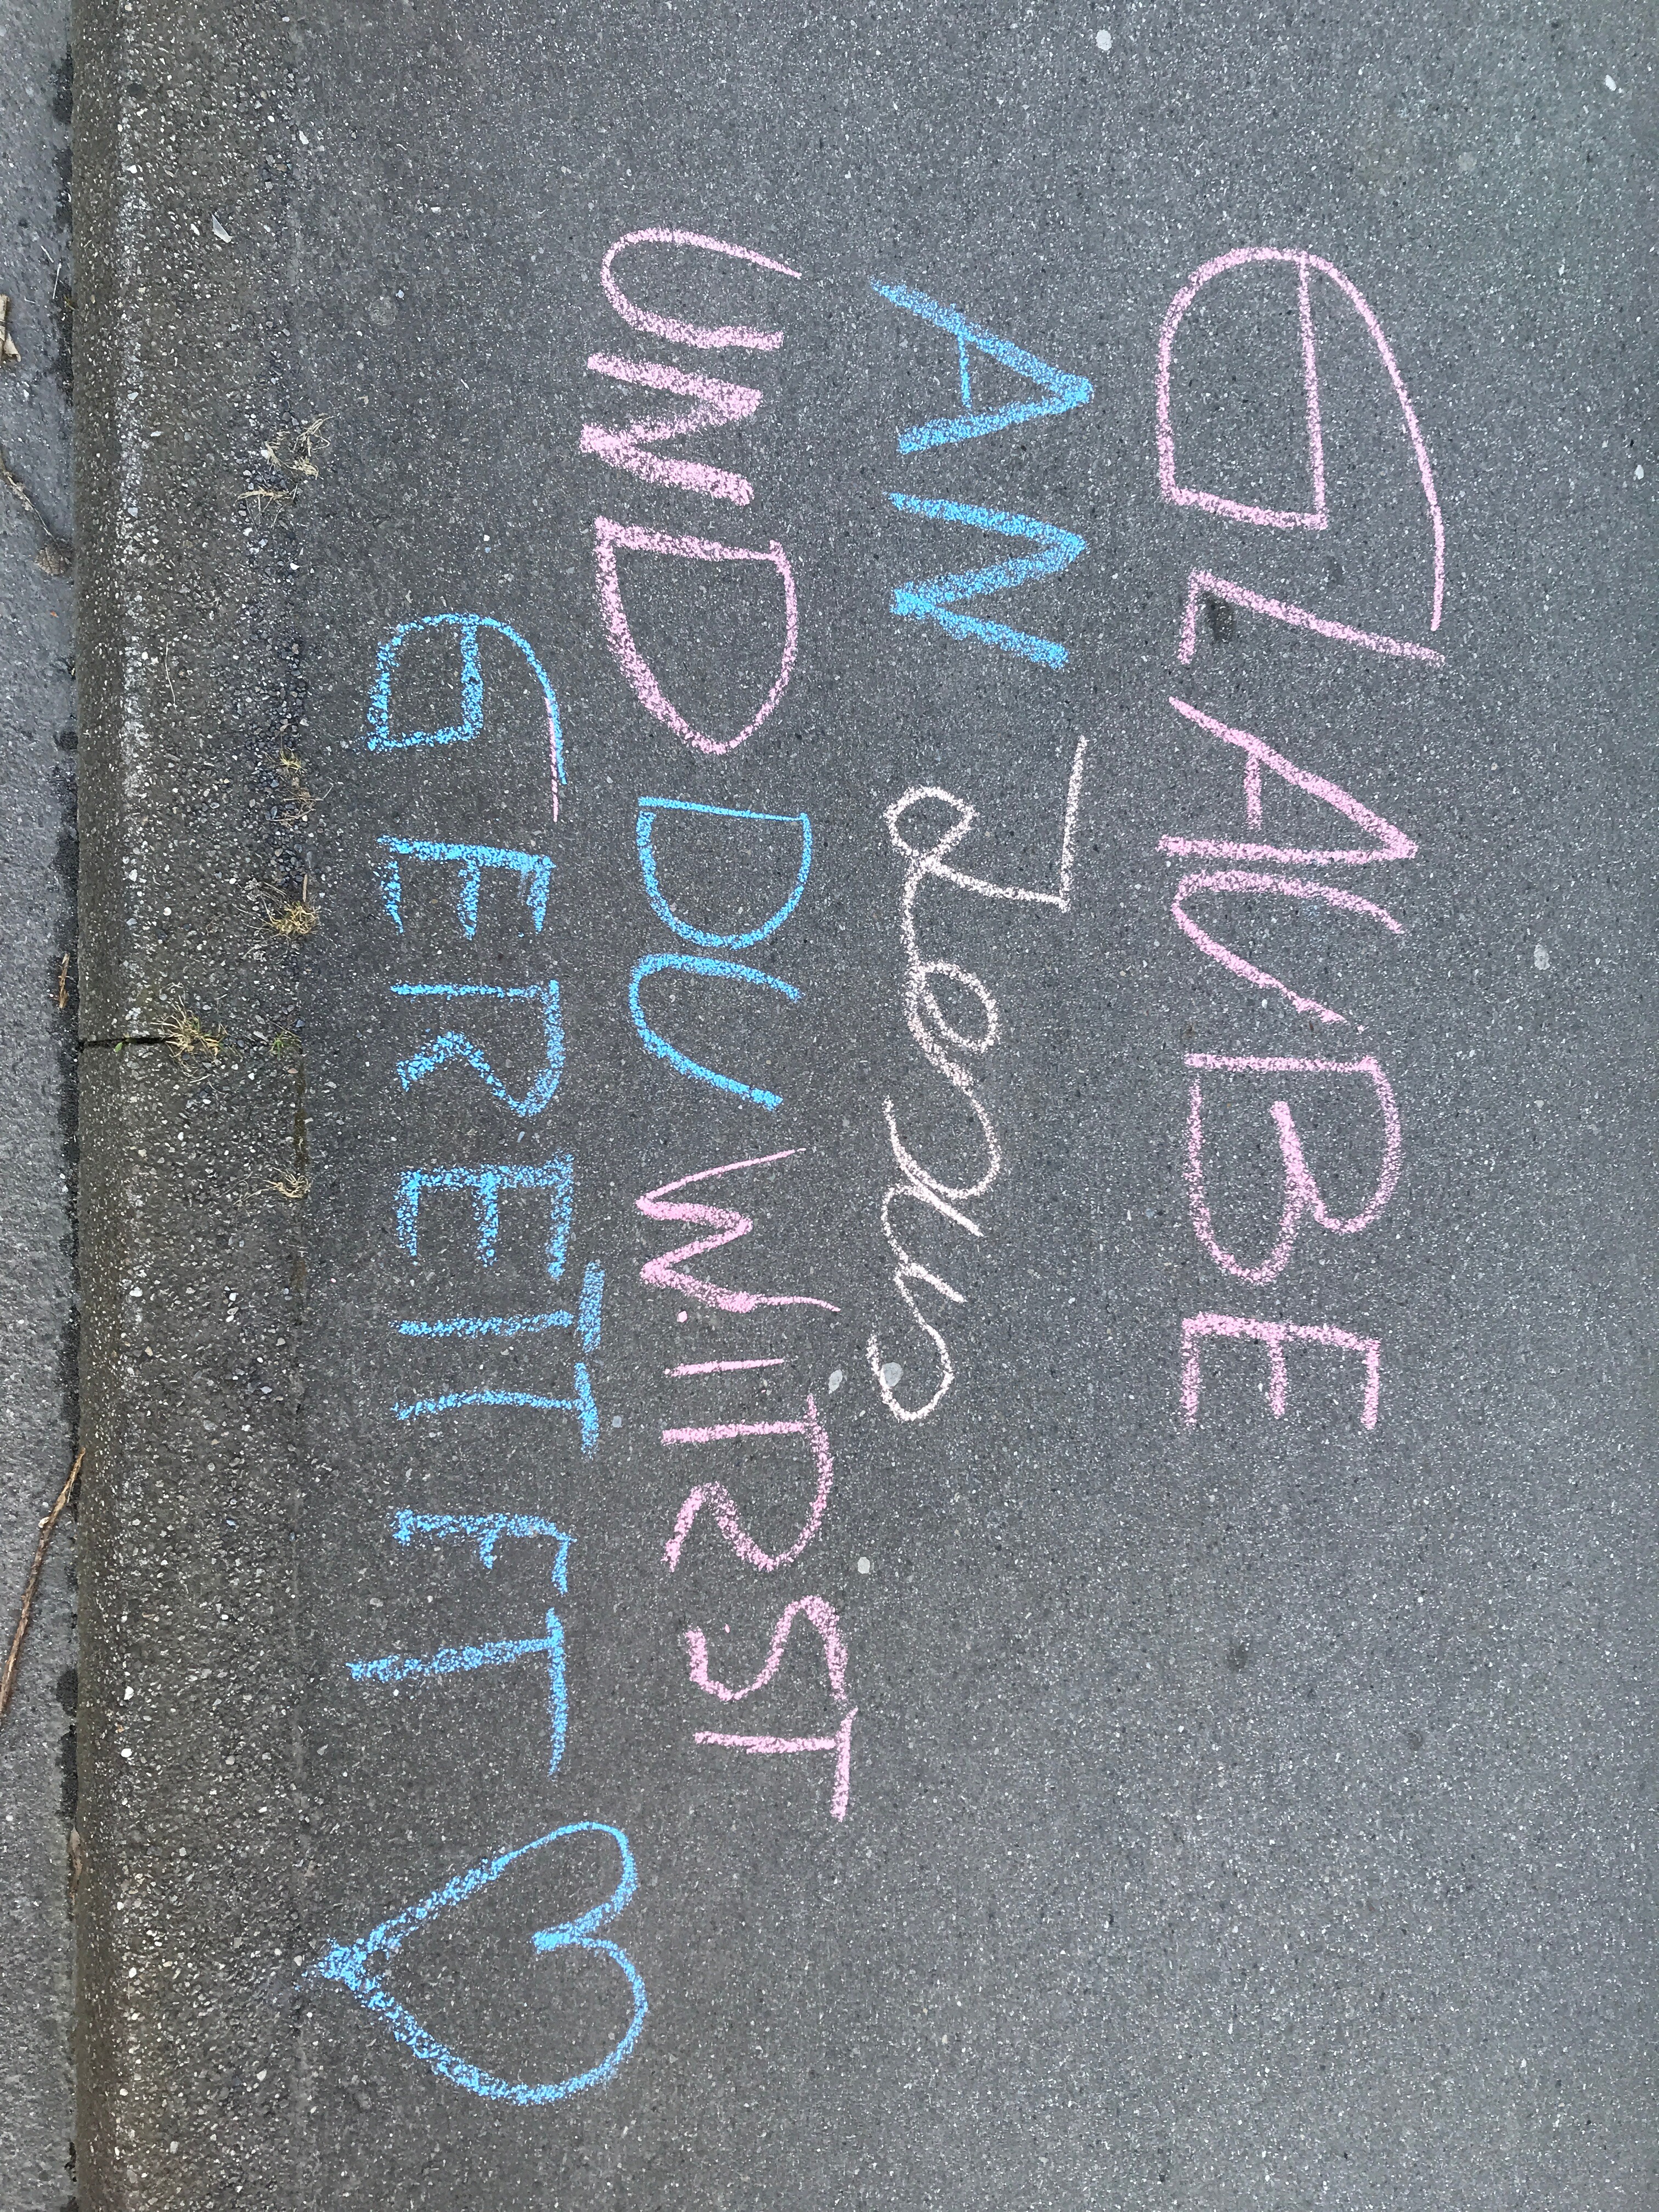 GLAUBE
AN Jesus
UND DU WIRST
GEREITET